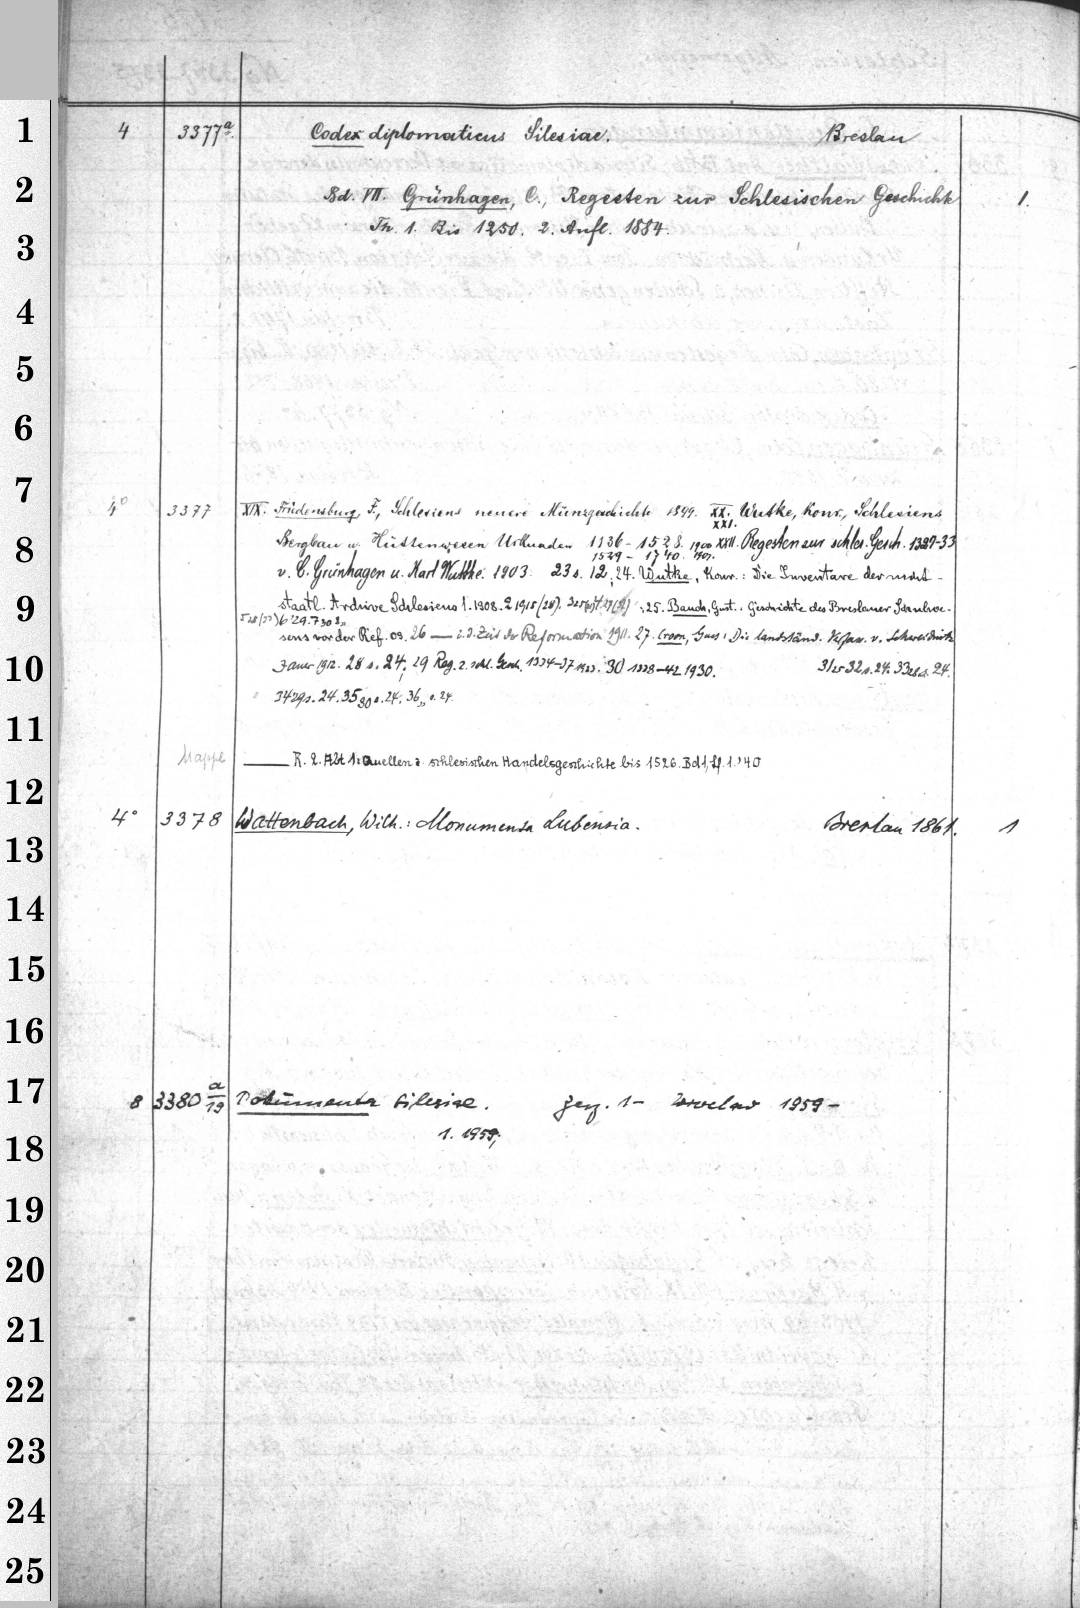 1 4 3377a. Codex diplomaticus Silesiae. Breslau
2 Bd. VII. Grünhagen, C., Regesten zur Schlesischen Geschichte 1.
3 Th. 1. Bis 1250. 2. Aufl. 1884.
4
5
6
7 4° 3377 XIX. Friedensburg, F., Schlesiens neuere Münzgeschichte 1899. XX. XXI. Wutke, Konr., Schlesiens
8 Bergbau u. Hüttenwesen Urkunden 1136-1528. 1900 XXII. Regesten zur schles. Gesch. 1327-33
1529-1740. 1901.
v. C. Grünhagen u. Karl Wuttke. 1903. 23 s. 12; 24. Wutke, Konr.: Die Inventare der nicht-
9 staatl. Archive Schlesiens 1. 1908. 2 1915 ; 25. Bauch, Gust.: Geschichte des Breslauer Schulwe-
sens vor der Ref. 09. 26 — i. d. Zeit der Reformation 1911. 27. Croon, Gust.: Die landständ. Verfass. v. Schweidnitz
10 Jauer 1912. 28 s. 24; 29 Reg. z. schl. Gesch. 1334-37 1923. 30 1338-42 1930. 31 32 s. 24. 33 24.
34 24. 35 s. 24; 36 s. 24
11 Mappe — R. 2. Abt 1: Quellen z. schlesischen Handelsgeschichte bis 1526. Bd 1, Lf. 1. '40
12 4° 3378 Wattenbach, Wilh.: Monumenta Lubensia. Breslau 1861. 1
13
14
15
16
17 8 3380 a/19 Dokumenta Silesiae. 1- 1959-
18 1. 1959;
19
20
21
22
23
24
25